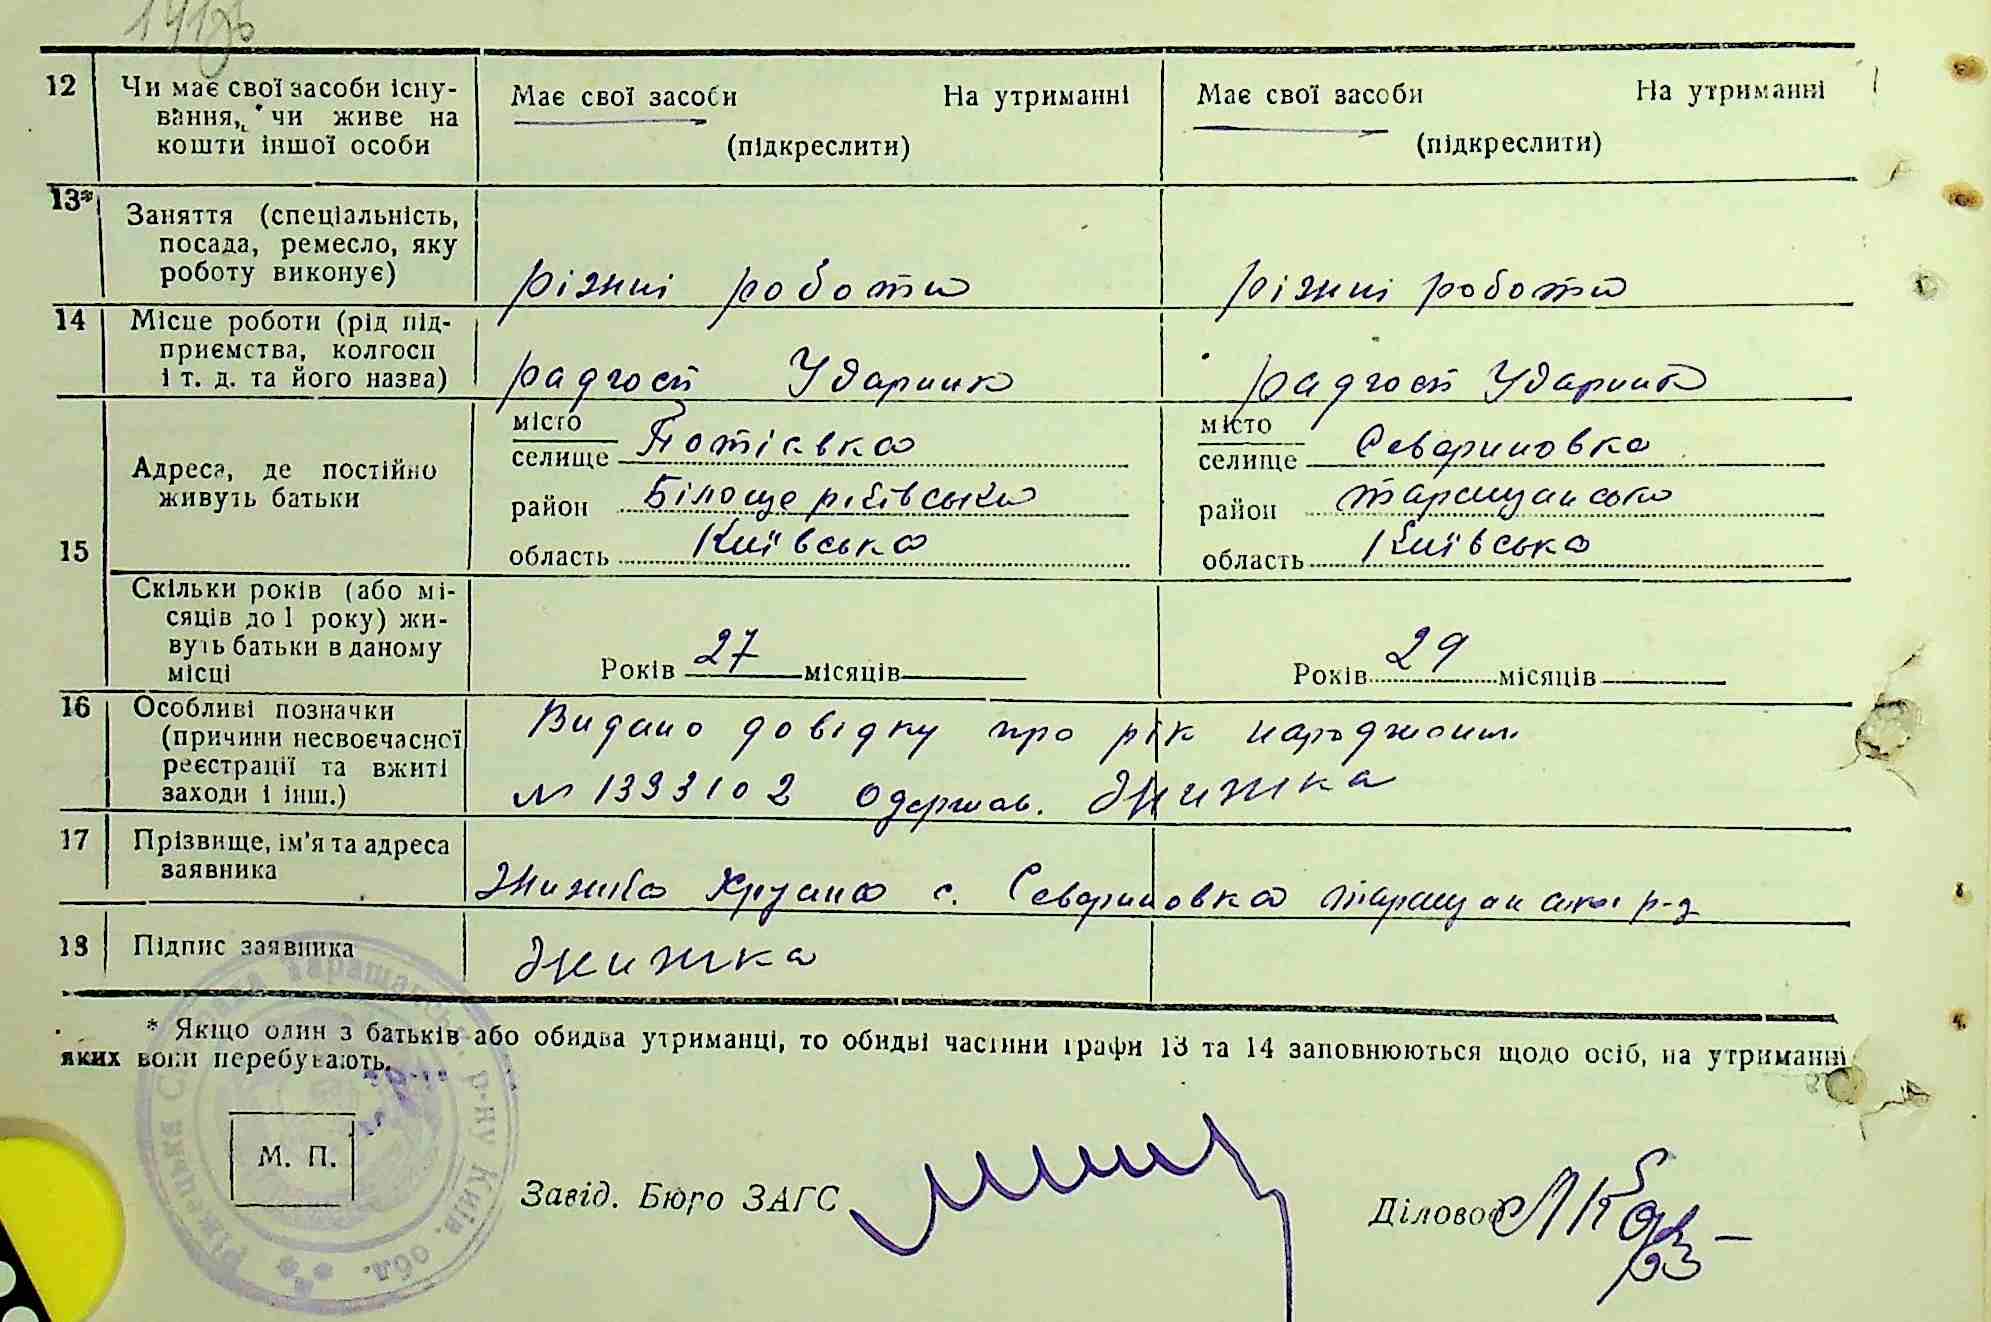 12
Чи має свої засоби існу-
вання, чи живе на
кошти іншої особи
Має свої засоби На утриманні
(підкреслити)
Має свої засоби На утриманні
(підкреслити)
13*
Заняття (спеціальність,
посада, ремесло, яку
роботу виконує)
різниі роботи
різниі роботи
14
Місце роботи (рід під-
приємства, колгосп
і т. д. та його назва)
радгосп Ударник
радгосп Ударник
15
Адреса, де постійно
живуть батьки
місто
селище Потієвка
район Білоцерківський
область Київська
місто
селище Севериновка
район Таращанський
область Київська
Скільки років (або мі-
сяців до 1 року) жи-
вуть батьки в даному
місці
Років 27 місяців
Років 29 місяців
16
Особливі позначки
(причини несвоєчасної
реєстрації та вжиті
заходи і інш.)
Видано довідку про рік народження
№ 1393102 одержав.
17
Прізвище, ім'я та адреса
заявника
с. Севериновка Таращанськ р-н
18
Підпис заявника
* Якщо один з батьків або обидва утриманці, то обидві частини графи 13 та 14 заповнюються щодо осіб, на утриманні
яких вони перебувають.
М. П.
Завід. Бюро ЗАГС
Діловод
р-ну Київ. обл.